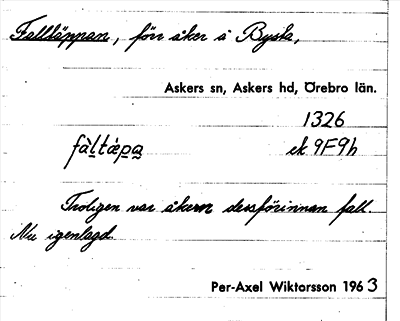 Falltäppan, förr åker å Bysta,
Askers sn, Askers hd, Örebro län.
1326
fàl̠tápa̠ ek 9F9h
Troligen var åkern dessförinnan fall.
Nu igenlagd.
Per-Axel Wiktorsson 1963